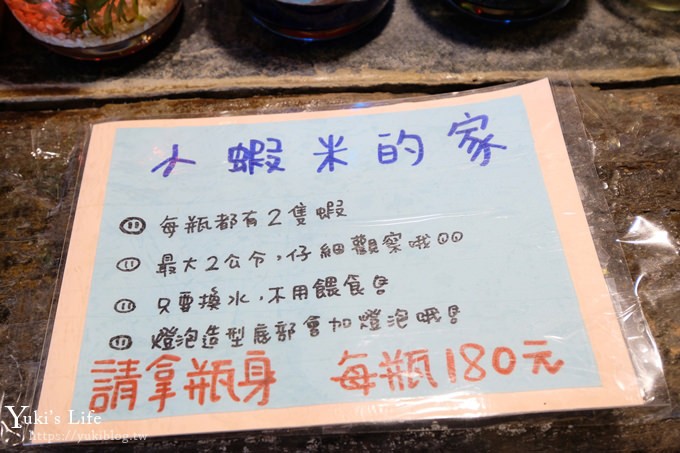 小蝦米的家
每瓶都有2隻蝦
最大2公分,仔細觀察哦
只要換水,不用餵食
燈泡造型底部會加燈泡哦
請拿瓶身 每瓶180元
Yuki's Life
https://yukiblog.tw